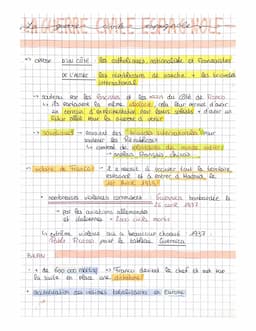 LA GUERRE CIVILE ESPAGNOLE
→ oppose D'UN CÔTÉ : les catholiques nationaliste et Franquistes
DE L'AUTRE : les républicains de gauche + les brigades
internationales
→ soutenu par les fascistes et les nazis du côté de Franco
↳ ils partagent la même idéologie, cela leur permet d'avoir
un terrain d'expérimentation pour leurs soldats + d'avoir un
futur allié pour la guerre à venir
→ Solidarité → envoient des brigades internationales pour
soutenir les Républicains
↳ des volontaires du monde entier
français,
→ victoire de Franco : il a réussit à occuper tout le territoire
espagnol et à entrer à Madrid, le
1er Avril 1939
• nombreuses violences commises : Guernica bombardée le
26 avril 1937
→ par les aviations allemandes
et italiennes = morts
↳ extrême violence qui a beaucoup choqué : 1937
Pablo Picasso peint le tableau Guernica
BILAN :
• + de 600 000 morts → Franco devient le chef et met sur
la suite en place une dictature
• des régimes totalitaires en Europe